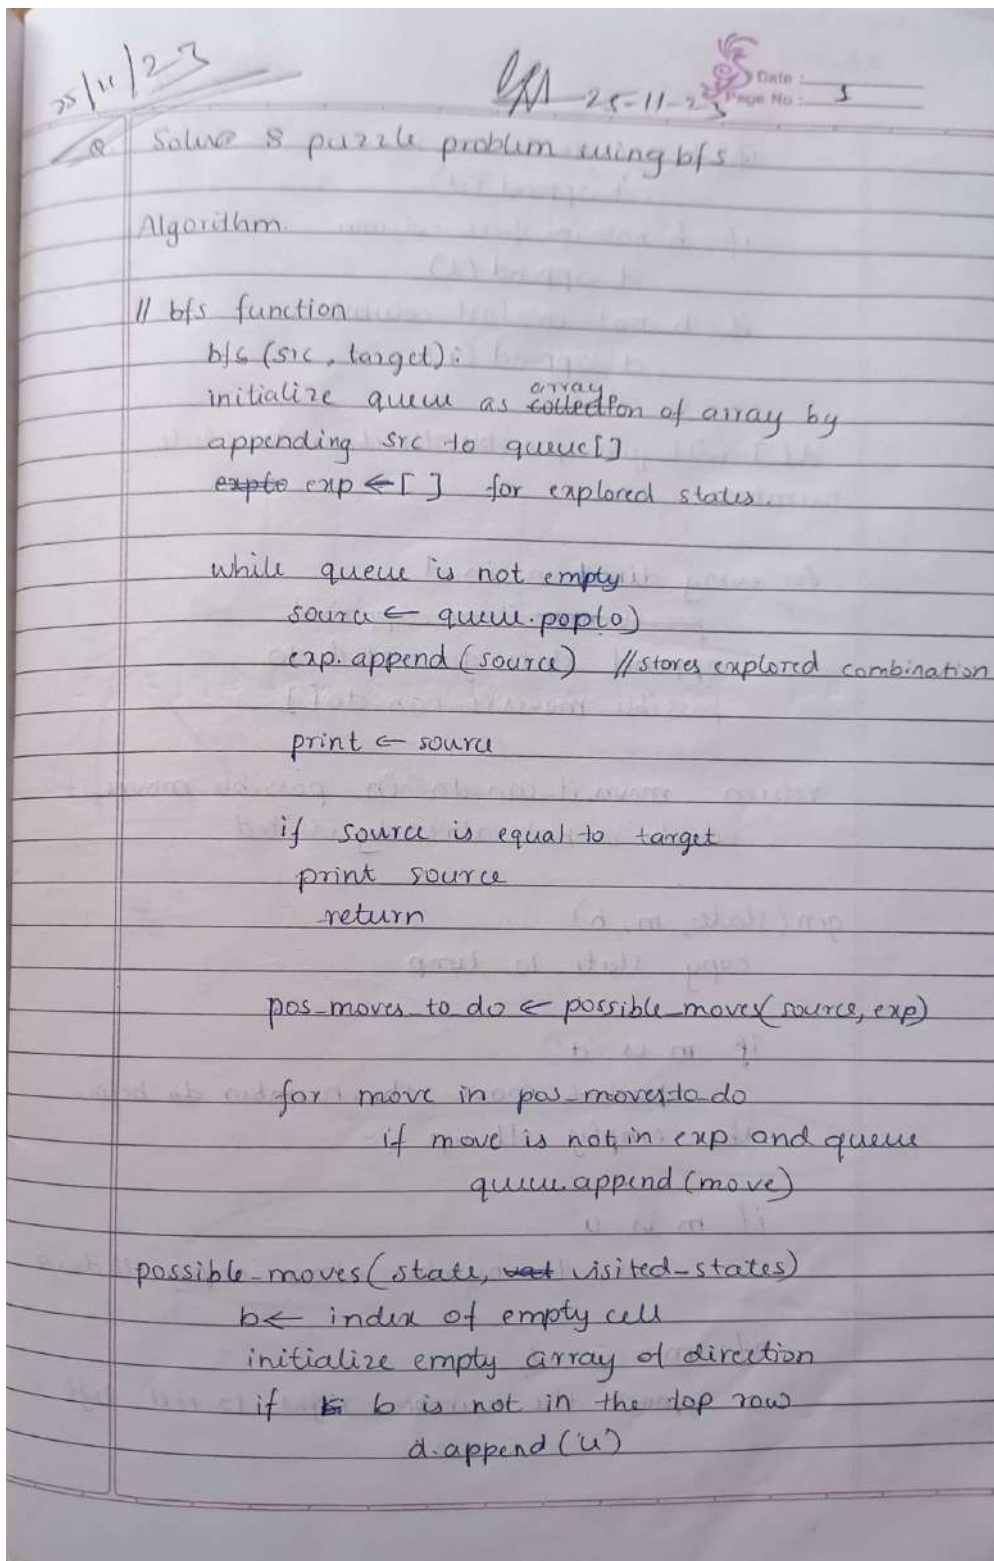 25/11/23
25-11-23
Date :
Page No : 1
Q Solve 8 puzzle problem using bfs
Algorithm.
// bfs function
bfs (src, target):
array
initialize queue as collection of array by
appending src to queue[]
expto exp ← [ ] for explored states
while queue is not empty
source ← queue.pop(0)
exp.append (source) // stores explored combination
print ← source
if source is equal to target
print source
return
pos_moves_to do ← possible_moves(source, exp)
for move in pos_moves_to_do
if move is not in exp and queue
queue.append (move)
possible_moves (state, visited_states)
b ← index of empty cell
initialize empty array of direction
if b is not in the top row
d.append ('u')